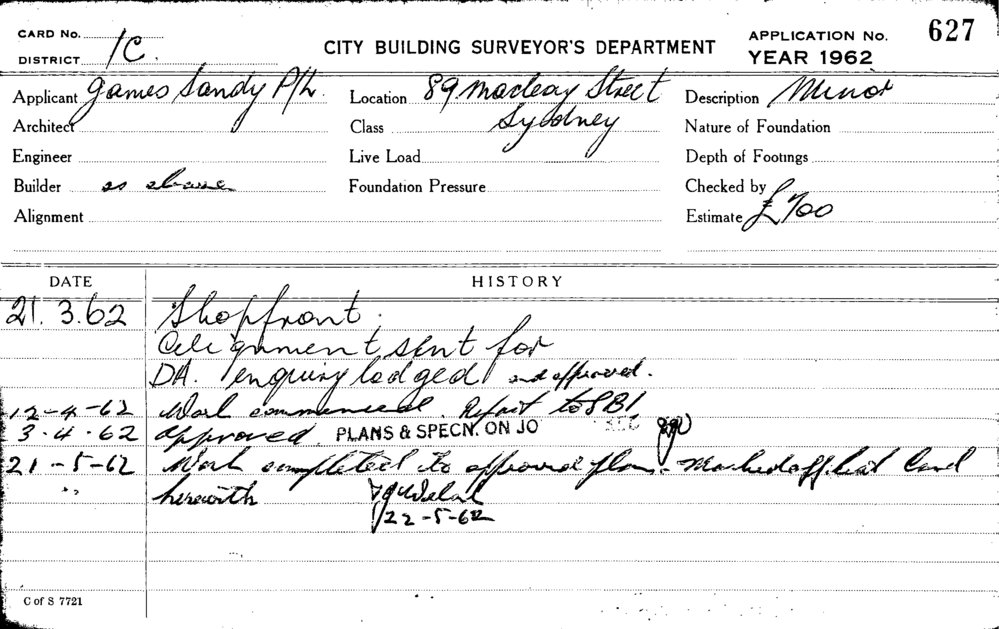 CARD No.
DISTRICT 1C.
CITY BUILDING SURVEYOR'S DEPARTMENT
APPLICATION No. 627
YEAR 1962
Applicant James Sandy P/L. Location 89 Macleay Street Description Minor
Architect Class Sydney Nature of Foundation
Engineer Live Load Depth of Footings
Builder as above Foundation Pressure Checked by
Alignment Estimate £700
DATE HISTORY
21.3.62 Shopfront.
Alignment sent for
DA. enquiry lodged and approved.
12-4-62 Work commenced. Report to SBI
3.4.62 approved. PLANS & SPECN. ON JO
21-5-62 Work completed to approved plan. Card
herewith
22-5-62
C of S 7721